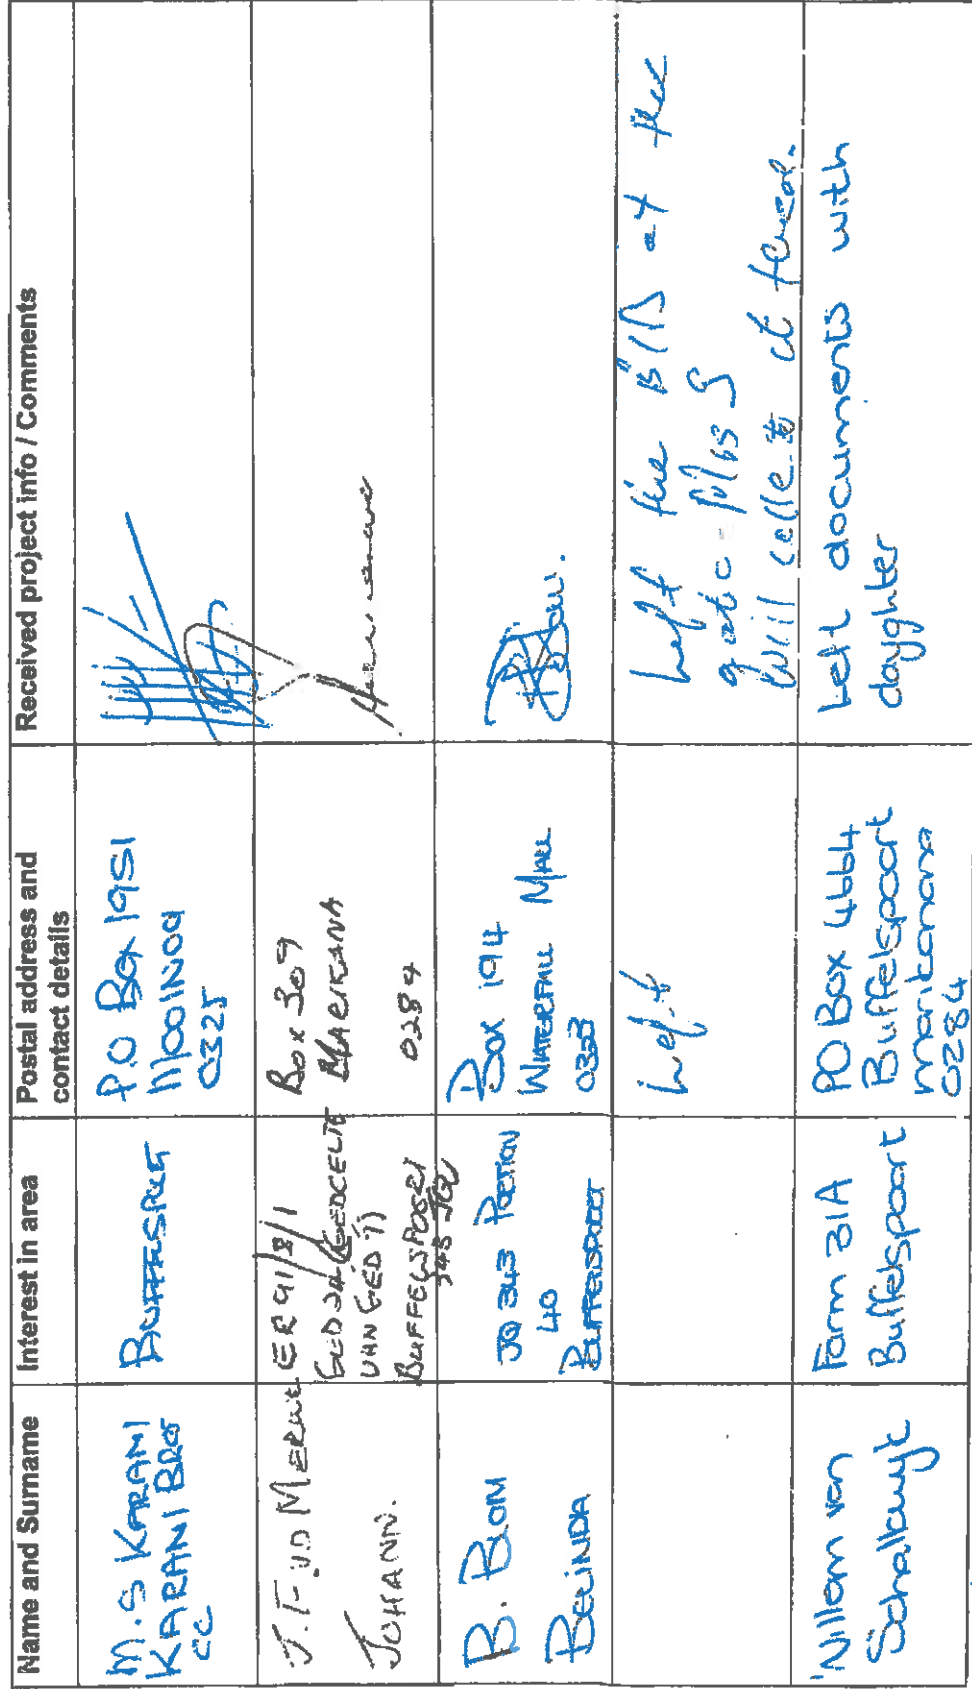 Name and Surname
Interest in area
Postal address and
contact details
Received project info / Comments
M.S KARANI
KARANI BROS
CC
BUFFESPRET
P.O Box 1951
MOOINOOI
0325
J.F. VD MERWE
JOHANN.
ER 91/8/1
GED
VAN GED 7)
BUFFELSPOORT
343 JQ
Box 309
MARIKANA
0284
B. BLOM
BELINDA
JQ 343 PORTION
40
BUFFELSPOORT
BOX 194
WATERFALL MALL
0323
Left
Left the BID at the
gate - Miss S
will collect it
Willem van
Schalkwyk
Farm 31A
Buffelspoort
PO BOX 4664
Buffelspoort
marikana
0284
Left documents with
dayghter